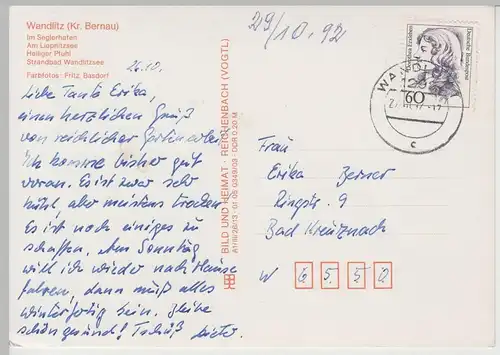 Wandlitz (Kr. Bernau)
Im Seglerhafen
Am Liepnitzsee
Heiliger Pfuhl
Strandbad Wandlitzsee
Farbfotos: Fritz, Basdorf
29/10.92
26.10.
Liebe Tante Erika,
einen herzlichen Gruß
von reichlicher Gartenarbeit.
Ich komme bisher gut
voran. Es ist zwar sehr
kühl, aber meistens trocken.
Es ist noch einiges zu
schaffen. Am Sonntag
will ich wieder nach Hause
fahren, dann muß alles
winterfertig sein. Bleibe
schön gesund! Tschüß Dieter.
BILD UND HEIMAT · REICHENBACH (VOGTL)
A1/III/26/13 · 01 05 0349/03 · DDR 0,20 M
Deutsche Bundespost
60
WANDLITZ
c
Frau
Erika Berner
Ringstr. 9
Bad Kreuznach
W 6550